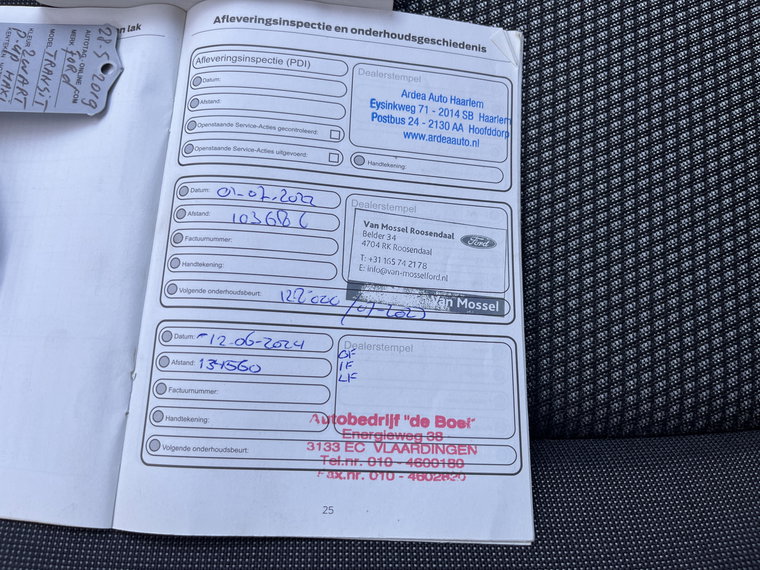 n lak
28-5 2019
AUTOTAG-ONLINE.COM
MERK FORD
MODEL TRANSIT
KLEUR ZWART
Afleveringsinspectie en onderhoudsgeschiedenis
Afleveringsinspectie (PDI)
Datum:
Afstand:
Openstaande Service-Acties gecontroleerd:
Openstaande Service-Acties uitgevoerd:
Dealerstempel
Ardea Auto Haarlem
Eysinkweg 71 - 2014 SB Haarlem
Postbus 24 - 2130 AA Hoofddorp
www.ardeaauto.nl
Handtekening:
Datum: 01-07-2022
Afstand: 103686
Factuurnummer:
Handtekening:
Volgende onderhoudsbeurt: 122.000 / 07-2023
Dealerstempel
Van Mossel Roosendaal
Belder 34
4704 RK Roosendaal
T: +31 165 74 21 78
E: info@van-mosselford.nl
Ford
Van Mossel
Datum: 12-06-2024
Afstand: 134560
Factuurnummer:
Handtekening:
Volgende onderhoudsbeurt:
Dealerstempel
OF
IF
LF
Autobedrijf "de Boei"
Energieweg 38
3133 EC VLAARDINGEN
Tel.nr. 010 - 4600180
Fax.nr. 010 - 4602820
25